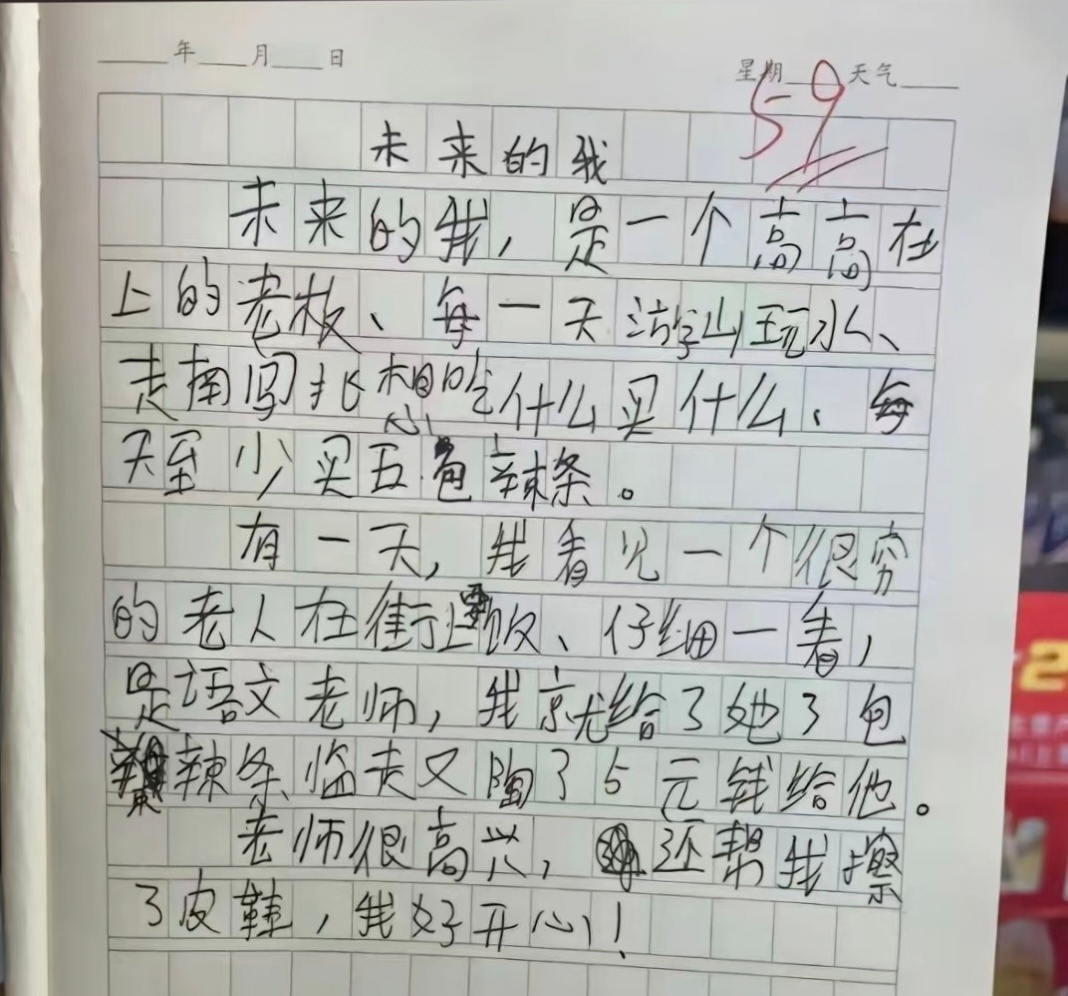 年 月 日
星期 天气
59
未来的我
未来的我，是一个高高在
上的老板、每一天游山玩水、
走南闯北想吃什么买什么、每
天至少买五包辣条。
有一天，我看见一个很穷
的老人在街边要饭、仔细一看，
是语文老师，我就给了她3包
辣条临走又陶了5元钱给他。
老师很高兴，还帮我擦
了皮鞋，我好开心！
2